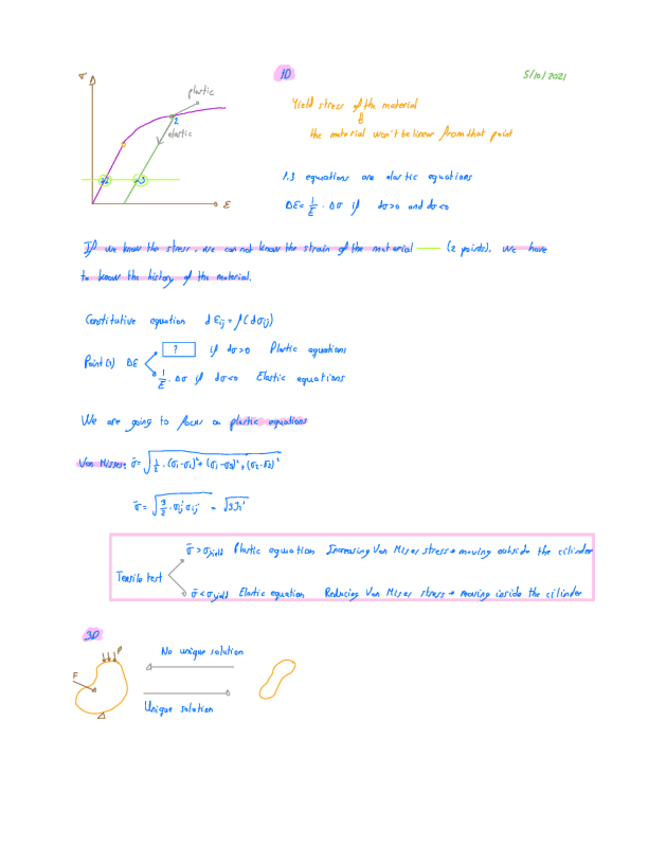 σ
plastic
2
elastic
ε
1D
5/10/2021
Yield stress of the material
the material won't be linear from that point
1.3 equations are elastic equations
Δε = 1/E · Δσ if dσ>0 and dσ<0
If we know the stress, we can not know the strain of the material —— (2 points). We have
to know the history of the material.
Constitutive equation dεij = f(dσij)
Point (1) Δε
? if dσ>0 Plastic equations
1/E · Δσ if dσ<0 Elastic equations
We are going to focus on plastic equations
Von Misses: σ̄ = √(1/2 · (σ1-σ2)² + (σ1-σ3)² + (σ2-σ3)²
σ̄ = √(3/2 · σ'ij σ'ij
σ̄ > σyield Plastic equation Increasing Von Mises stress → moving outside the cilinder
Tensile test
σ̄ < σyield Elastic equation Reducing Von Mises stress → moving inside the cilinder
3D
P
F
No unique solution
Unique solution